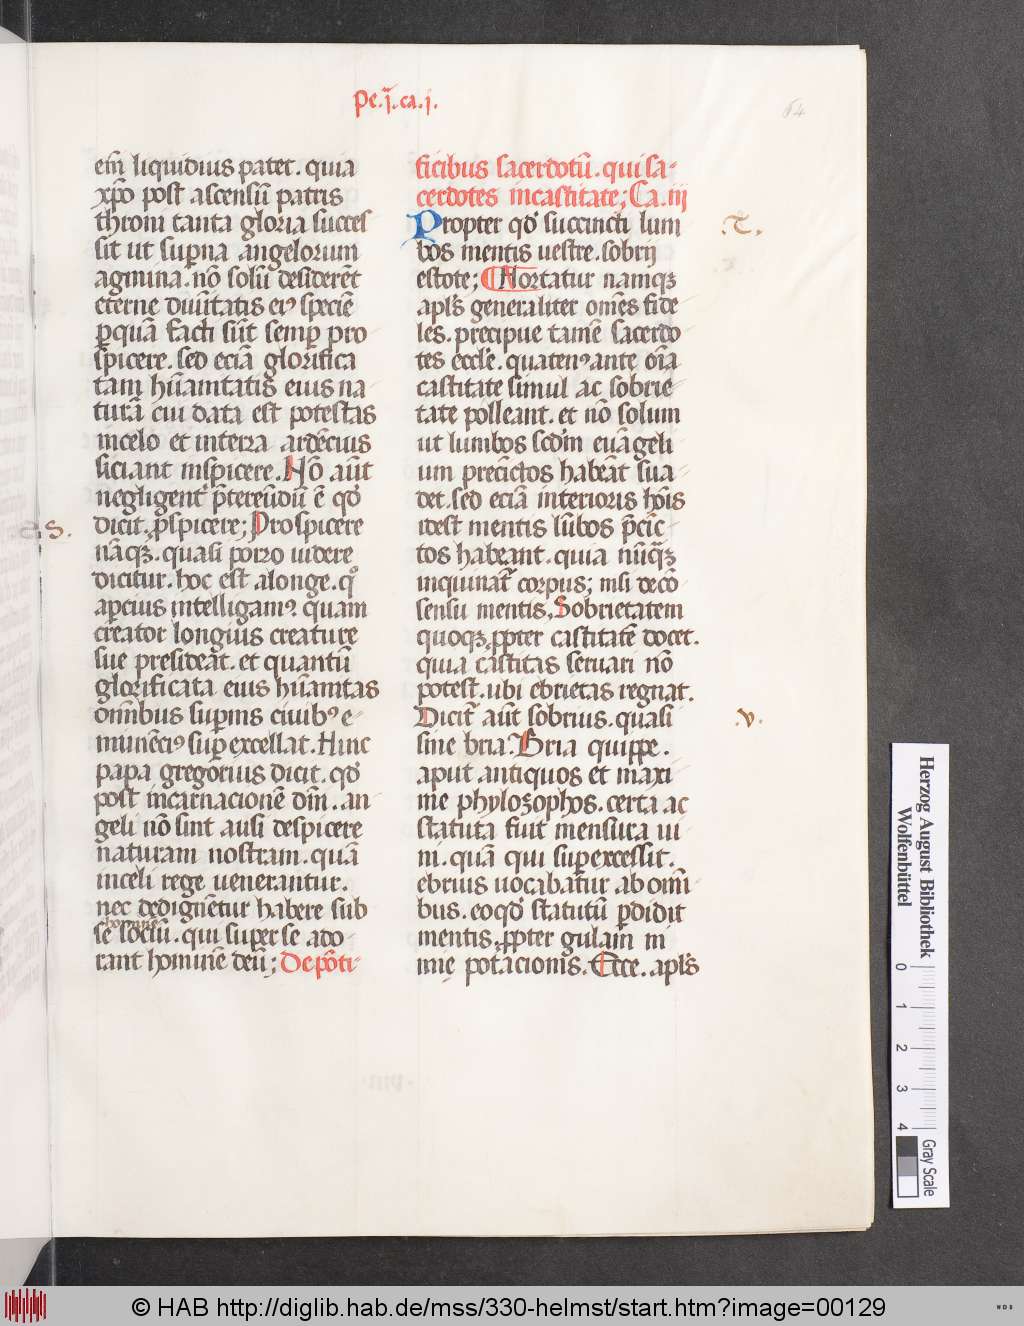 Pe.j.ca.j.
64
em̄ liquidius patet. quia
xp̄o post ascensū patris
throni tanta gloria succes
sit ut sup̄na angelorum
agmina. nō solū desiderēt
eterne diuītatis ei9 speciē
ꝑquā facti sūt semp̄ pro
spicere. sed eciā glorifica
tam hūanitatis eius na
turā cui data est potestas
incelo et interra ardēcius
siciant inspicere. Nō aūt
negligent᷑ p̄tereūdū ē qd̓
dicit. ꝓspicere; Prospicere
nāqꝫ. quasi porro uidere
dicitur. hoc est alonge. qͦ
apcius intelligam9 quam
creator longius creature
sue presideāt. et quantū
glorificata eius hūanitas
om̄ibus supernis ciuib9 e-
munēci9 sup̄excellat. Hinc
papa gregorius dicit. qd̓
post incarnacionē dn̄i. an-
geli nō sint ausi despicere
naturam nostram. quā
inceli rege uenerantur.
nec dedignētur habere sub
homine
se sociū. qui super se ado-
rant hominē deū; De pōti-
ficibus sacerdotū. qui sa-
cerdotes incastitate; Ca.iij
Propter qd̓ succincti lum
bos mentis uestre. sobrij
estote; Hortatur namqꝫ
apl's generaliter om̄es fide
les. precipue tamē sacerdo
tes eccl'e. quaten9 ante om̄ia
castitate simul ac sobrie-
tate polleant. et nō solum
ut lumbos scd̓m euāgeli
um precīctos habeāt sua-
det. sed eciā interioris hōis
idest mentis lūbos p̄cīc-
tos habeant. quia nūq̄ꝫ
inquinat᷑ corpus; nisi decō
sensu mentis, Sobrietatem
quoqꝫ ꝓpter castitatē docet.
quia castitas seruari nō
potest. ubi ebrietas regnat.
Dicit᷑ aūt sobrius. quasi
sine bria. Bria quippe.
aput antiquos et maxi
me phylozophos. certa ac
statuta fuit mensura ui
ni. quā qui sup̄excessit.
ebrius uocabat᷑ur ab omī
bus. eoqd̓ statutū ꝑdidit
mentis, ꝓpter gulam ni
mie potacionis. Ecce. apl's
.T.
.v.
S.
Herzog August Bibliothek
Wolfenbüttel
0 1 2 3 4
Gray Scale
© HAB http://diglib.hab.de/mss/330-helmst/start.htm?image=00129